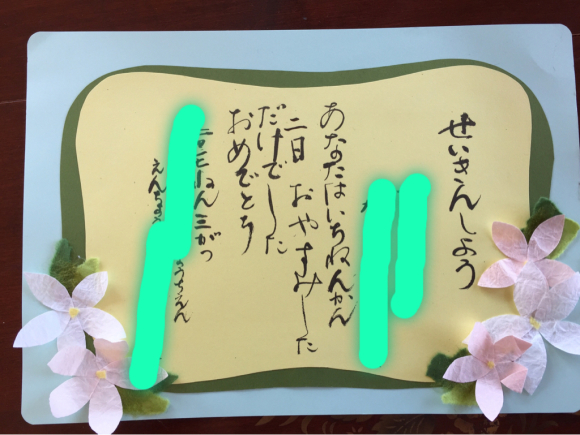 せいきんしょう
あなたはいちねんかん
二日 おやすみした
だけでした
おめでとう
ねん三がつ
うちえん
えんちょう